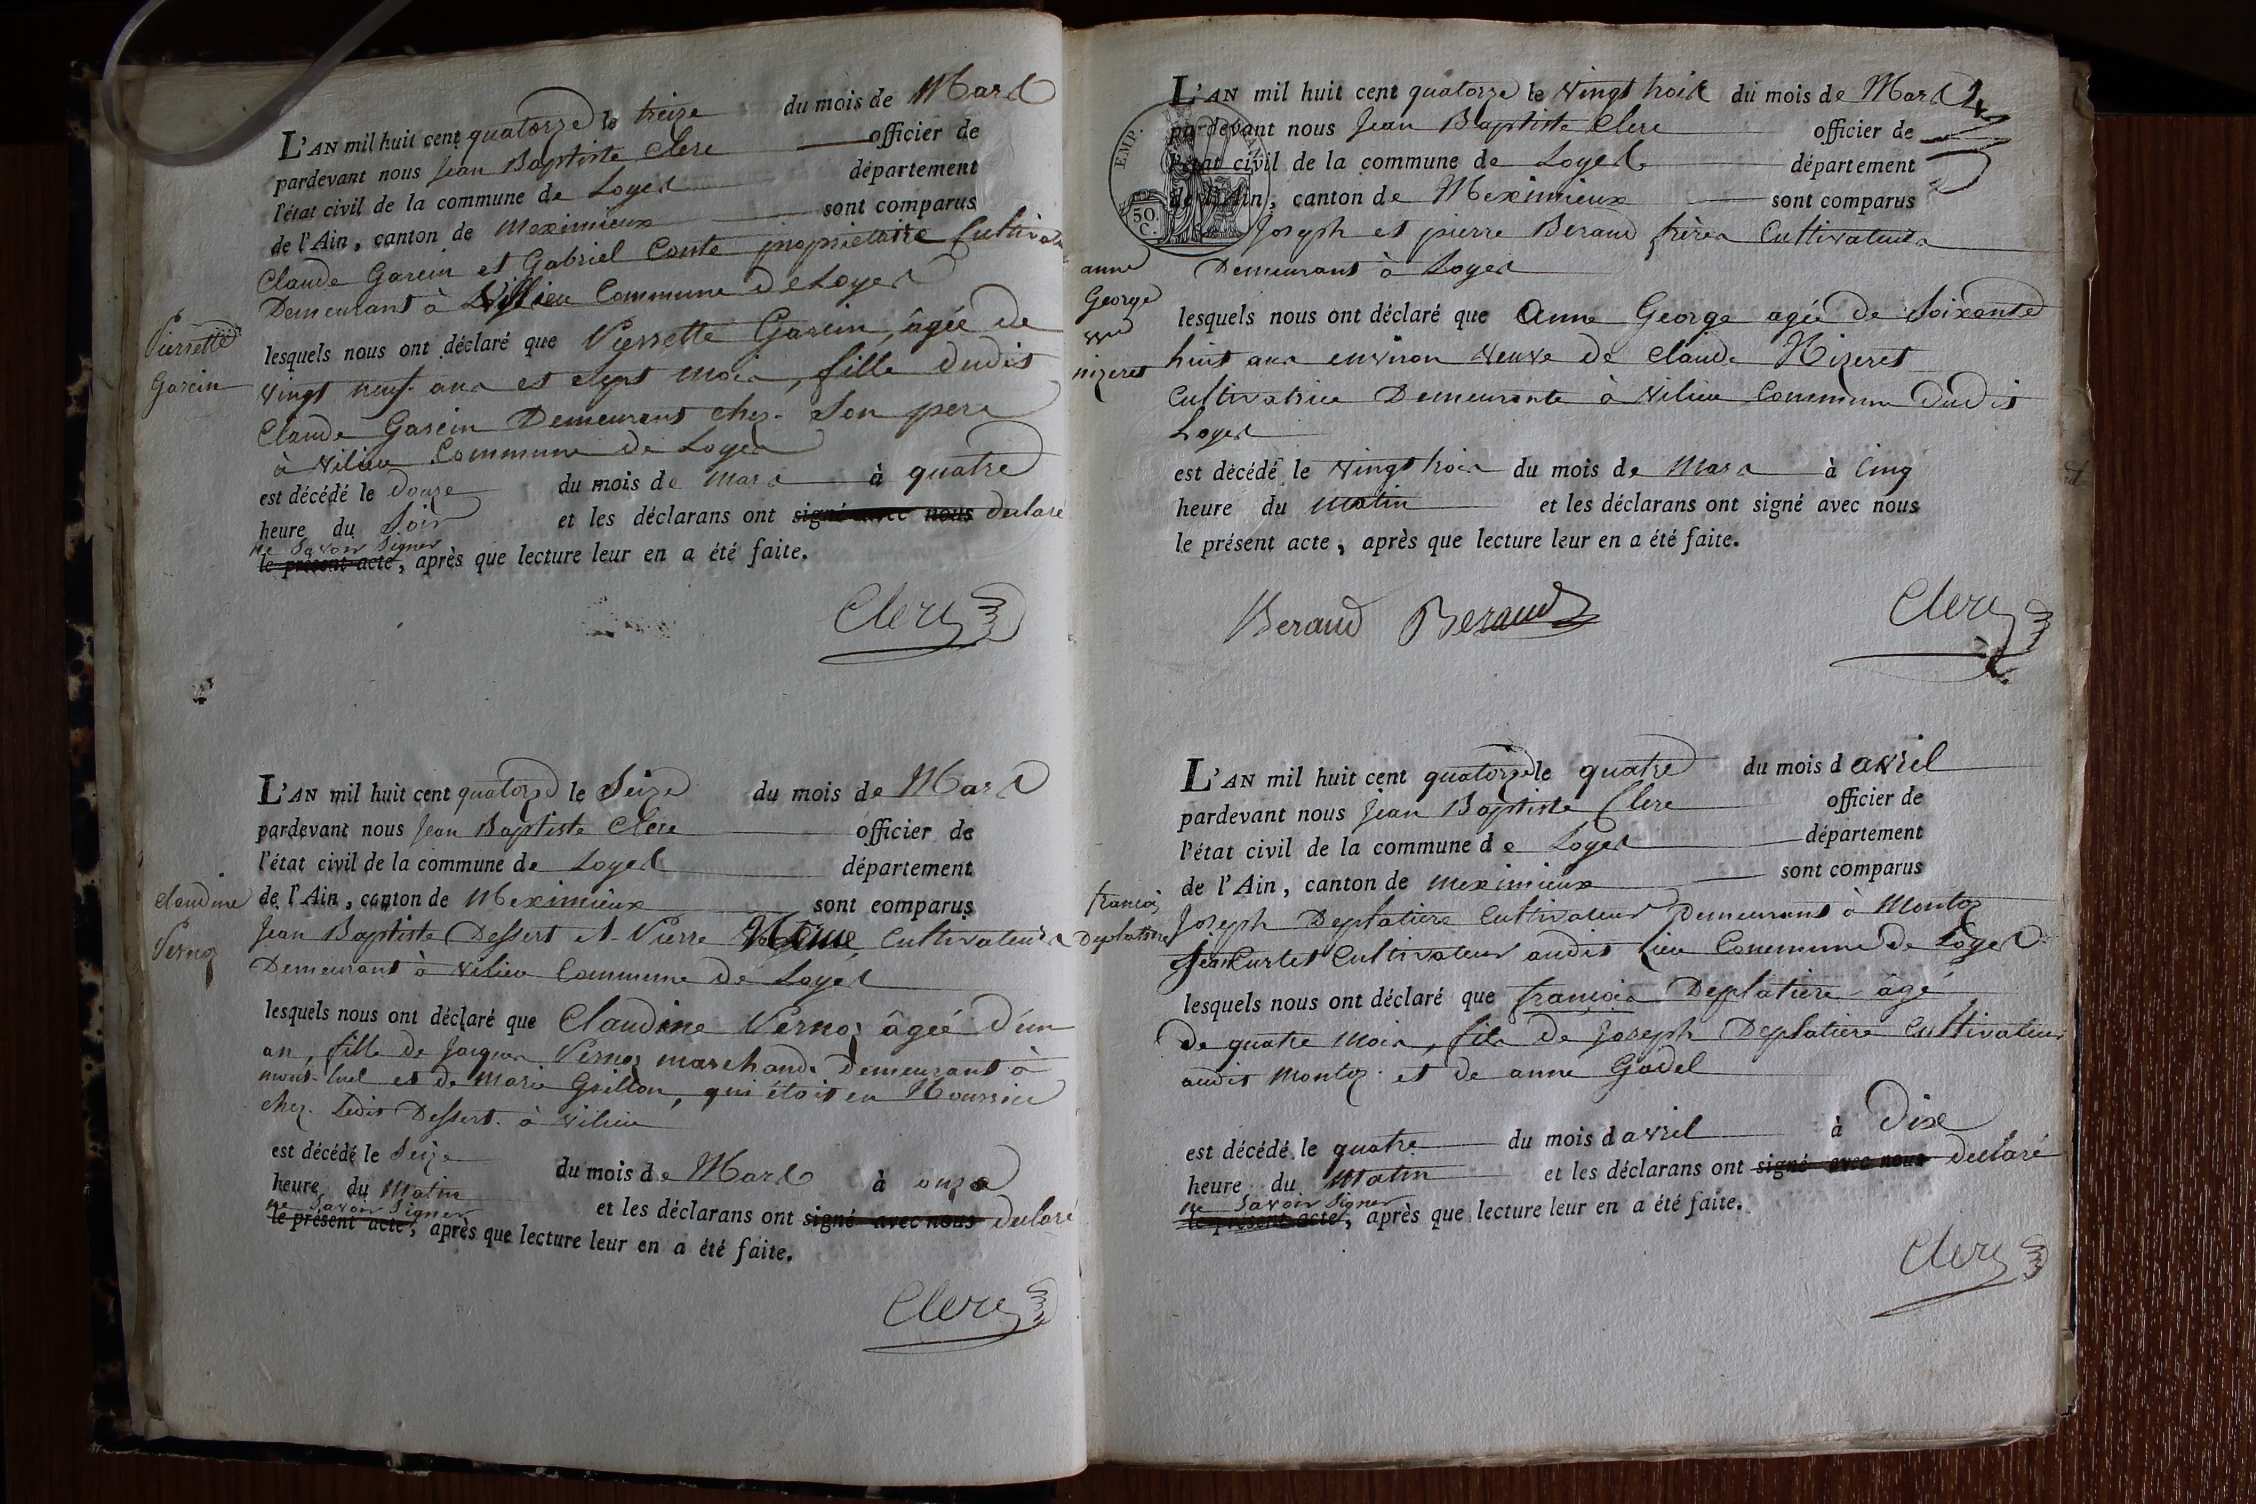 L'AN mil huit cent quatorze le treize du mois de Mars
pardevant nous Jean Baptiste Clerc officier de
l'état civil de la commune de Loyes département
de l'Ain, canton de Meximieux sont comparus
Claude Garcin et Gabriel Conte propriétaire Cultivat
Demeurant à Villieu Commune de Loyes
Pierrette
Garcin
lesquels nous ont déclaré que Pierrette Garcin, âgée de
vingt neuf ans et sept mois, fille dudit
Claude Garcin Demeurant chez son pere
à Vilieu Commune de Loyes
est décédé le douze du mois de mars à quatre
heure du Soir et les déclarans ont signé avec nous declaré
ne Savoir Signer
le présent acte, après que lecture leur en a été faite.
Clerc
L'AN mil huit cent quatorze le Seize du mois de Mars
pardevant nous Jean Baptiste Clerc officier de
l'état civil de la commune de Loyes département
claudine
Vernoz
de l'Ain, canton de Meximieux sont comparus
Jean Baptiste Dessert et Pierre Cultivateurs
Demeurant à Vilieu Commune de Loyes
lesquels nous ont déclaré que Claudine Vernoz âgée d'un
an, fille de Jacques Vernoz marchand Demeurant à
mont-luel et de Marie Grillon, qui étoit en Nourrice
chez Ledit Dessert à Vilieu
est décédé le Seize du mois de Mars à onze
heure du Matin et les déclarans ont signé avec nous declaré
ne Savoir Signer
le présent acte, après que lecture leur en a été faite.
Clerc
L'AN mil huit cent quatorze le vingt trois du mois de Mars
pardevant nous Jean Baptiste Clerc officier de
l'état civil de la commune de Loyes département
de l'Ain, canton de Meximieux sont comparus
EMP.
50
C.
Joseph et pierre Beraud frères Cultivateurs
Demeurant à Loyes
anne
George
vve
nizeret
lesquels nous ont déclaré que Anne George agée de Soixante
huit ans environ Veuve de Claude Nizeret
Cultivatrice Demeurante à Vilieu Commune Dudit
Loyes
est décédé le vingt trois du mois de Mars à Cinq
heure du matin et les déclarans ont signé avec nous
le présent acte, après que lecture leur en a été faite.
Beraud Beraud Clerc
L'AN mil huit cent quatorze le quatre du mois d avril
pardevant nous Jean Baptiste Clerc officier de
l'état civil de la commune de Loyes département
de l'Ain, canton de Meximieux sont comparus
francois
Deplatiere
Joseph Deplatiere Cultivateur Demeurant à Montoz
Jean Curtet Cultivateur audit Lieu Commune de Loyes
lesquels nous ont déclaré que françois Deplatiere âgé
de quatre mois, fils de Joseph Deplatiere Cultivateur
audit Montoz et de anne Godel
est décédé le quatre du mois d avril à Dix
heure du Matin et les déclarans ont signé avec nous declaré
ne Savoir Signer
le présent acte, après que lecture leur en a été faite.
Clerc